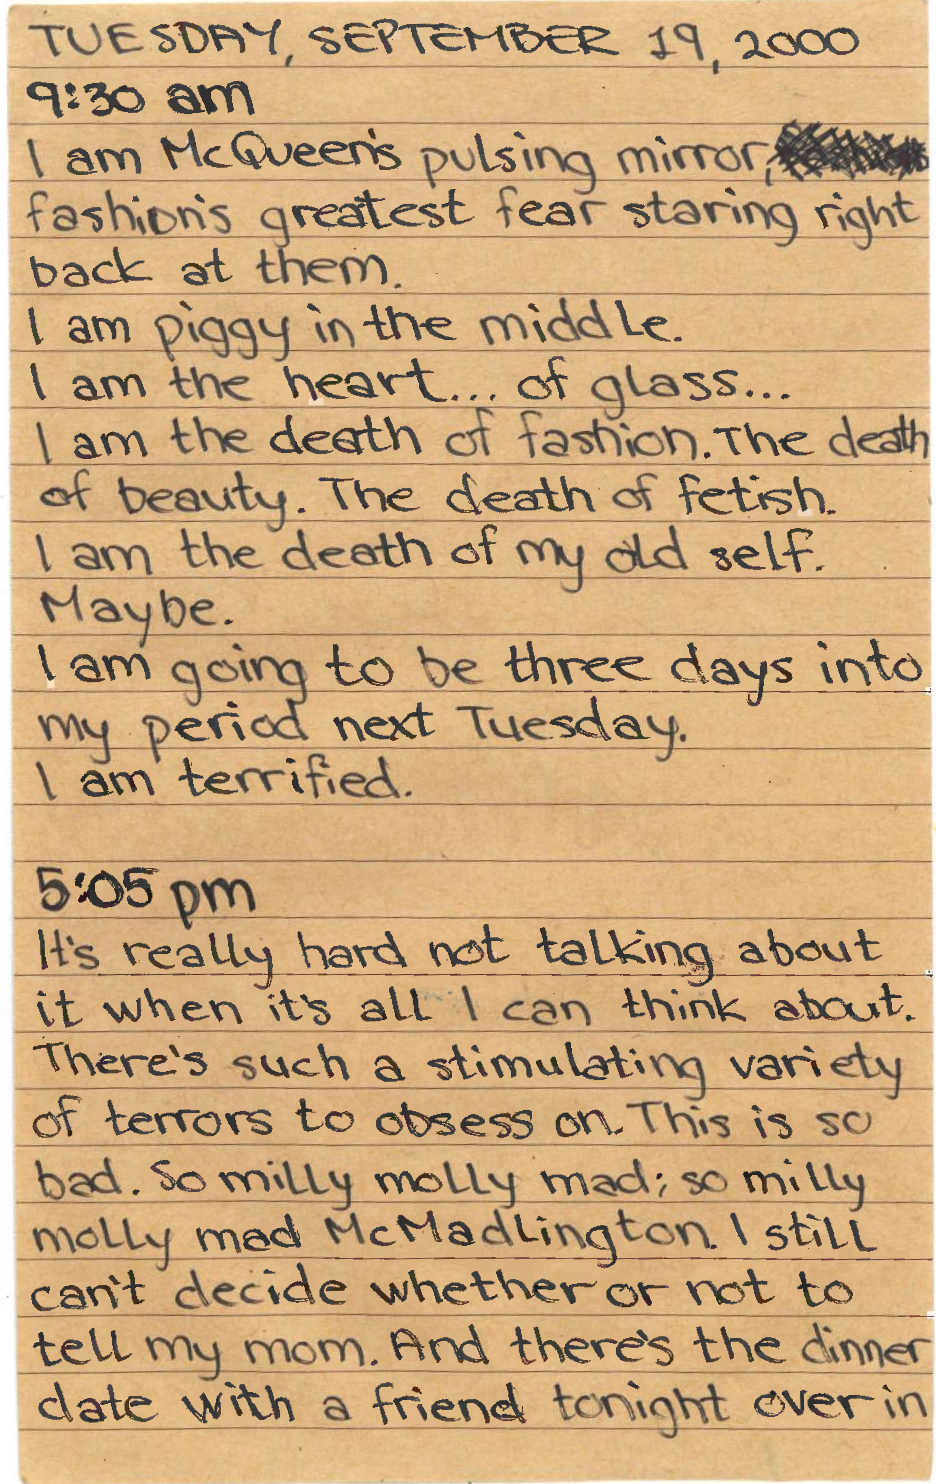 TUESDAY, SEPTEMBER 19, 2000
9:30 am
I am McQueen's pulsing mirror,
fashion's greatest fear staring right
back at them.
I am piggy in the middle.
I am the heart... of glass...
I am the death of fashion. The death
of beauty. The death of fetish.
I am the death of my old self.
Maybe.
I am going to be three days into
my period next Tuesday.
I am terrified.
5:05 pm
It's really hard not talking about
it when it's all I can think about.
There's such a stimulating variety
of terrors to obsess on. This is so
bad. So milly molly mad; so milly
molly mad McMadlington. I still
can't decide whether or not to
tell my mom. And there's the dinner
date with a friend tonight over in